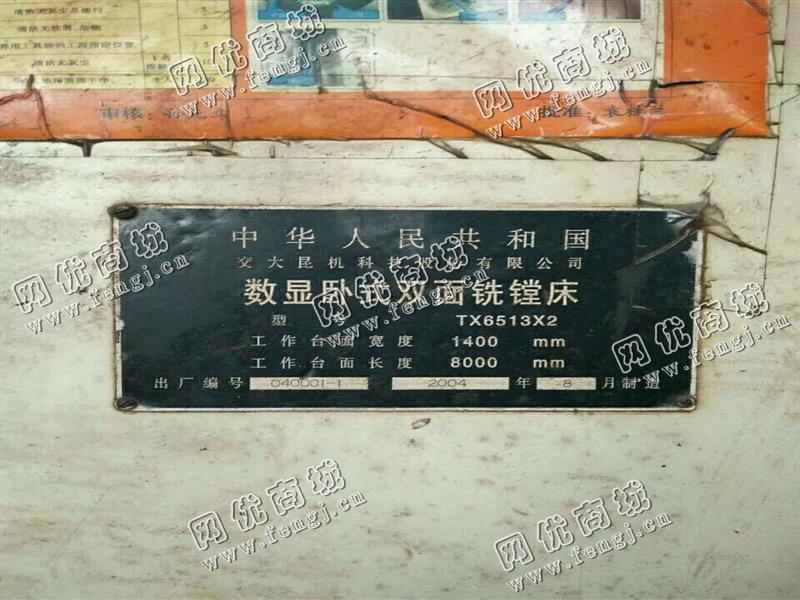 清洁无灰尘及油污 5
清洁无铁屑,杂物 5
养用工具放到工段指定位置 5
清洁无灰尘
审核:
批准:
中华人民共和国
交大昆机科技股份有限公司
数显卧式双面铣镗床
型 号 TX6513X2
工作台面宽度 1400 mm
工作台面长度 8000 mm
出厂编号 040001-1 2004 年 8 月制造
网优商城
www.fengj.cn
网优商城
www.fengj.cn
网优商城
www.fengj.cn
网优商城
www.fengj.cn
网优商城
www.fengj.cn
网优商城
www.fengj.cn
网优商城
www.fengj.cn